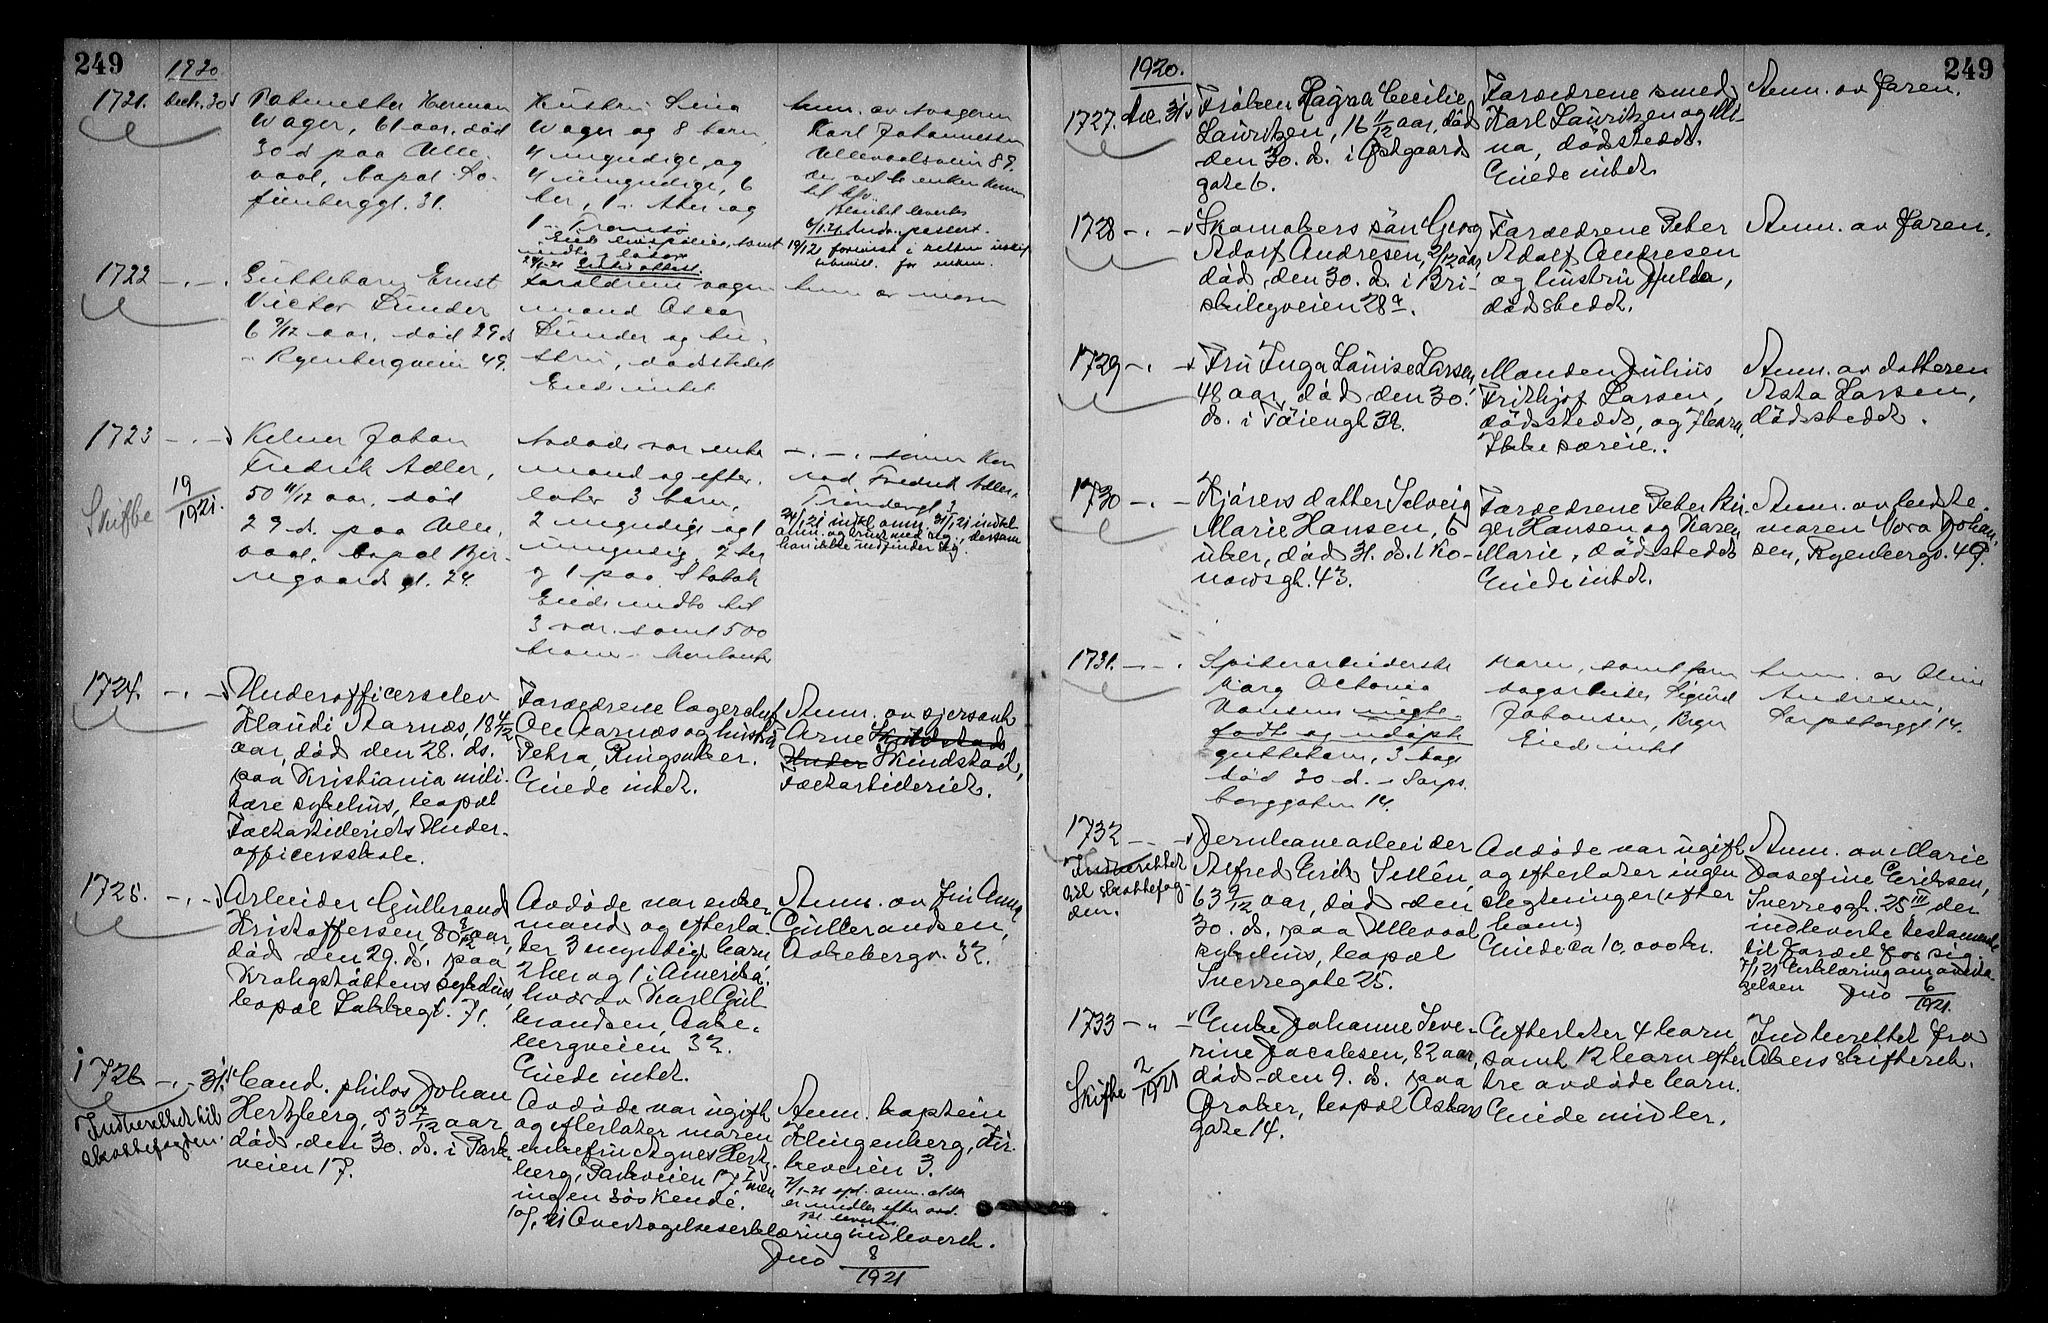 249
1920.
1721. Decb. 30 d
Herman
Wager, 61 aar, død
30 d paa Ulle-
vaal, bopæl So-
fienberggt. 31.
Hustru Lina
Wager og 8 barn
4 myndige, og
4 umyndige, 6
her, 1 i Aker og
1 i Tromsø
Anm. av svogeren
Karl Johannessen
Ullevaalsveien 89.
1722 -„-
Guttebarn Ernst
Victor Lunder
6 9/12 aar, død 29 d
i Ryenbergveien 49.
Forældrene vogn-
mand Oscar
Lunder og hu-
stru, dødsstedet
Eied intet
Anm av moren
1723 -„-
Skifte 19/1921.
Kelner Johan
Fredrik Adler,
50 11/12 aar, død
29 d. paa Ulle-
vaal, bopæl Bjer-
regaards gt. 24.
Avdøde var enke
mand og efter-
later 3 barn,
2 myndige og 1
umyndig, 2 her
og 1 paa
Eiede indbo til
3 vær. samt 500
kroner i kontanter
-„-, sønnen Kon
rad Fredrik Adler,
1724. -„-
Underofficerselev
Klaudi Aarnæs, 18 4/12
aar, død den 28. ds.
paa Kristiania mili-
tære sykehus, bopæl
Fæstartilleriets Under-
officersskole.
Forældrene lagerchef
Ole Aarnæs og hustru
Petra, Ringsaker.
Eiede intet.
Anm. av sjersant
Arne
Skindstad,
Fæstartilleriet.
1725. -„-
Arbeider Gulbrand
Kristoffersen, 80 aar,
død den 29. d. paa
Krohgstøttens sykehus,
bopæl Lakkegt. 71.
Avdøde var enke-
mand og efterla-
ter 3 myndige barn,
2 her og 1 i Amerika,
hvorav Karl Gul-
brandsen, Aake-
bergveien 32.
Eiede intet.
Anm. av Fru Anna
Gulbrandsen,
Aakebergv. 32.
1726 -„- 31.
Indberettet til
skattefogden.
Cand. philos Johan
Hertzberg, 53 7/12 aar
død den 30. d. i Park-
veien 17.
Avdøde var ugift
og efterlater moren
enkefru Agnes Hertz-
berg, Parkveien 17 I men
ingen søskende.
Overtagelseserklæring indleveret.
8/1921
Anm. kaptein
Klingenberg, Kir-
keveien 3.
249
1920.
1727. dec. 31
Frøken Ragna Cecilie
Lauritzen, 16 11/12 aar, død
den 30. d. i Østgaards
gate 6.
Forældrene smed
Karl Lauritzen og Mi-
na, dødstedet.
Eiede intet
Anm. av faren.
1728 -„-
Skomakers søn Georg
Adolf Andresen, 2/12 aar,
død den 30. d. i Bri-
skebyveien 28 a.
Forældrene Peter
Adolf Andresen
og hustru Hulda,
dødstedet.
Anm. av faren.
1729 -„-
Fru Inga Louise Larsen,
48 aar, død den 30.
d. i Tøiengt 32.
Manden Julius
Frithjof Larsen,
dødsstedet, og 7 barn.
Ikke særeie.
Anm. av datteren
Asta Larsen,
dødsstedet.
1730 -„-
Kjørers datter Solveig
Marie Hansen, 6
uker, død 31. d. i Ko-
nowsgt. 43.
Forældrene Peter Bir-
ger Hansen og Karen
Marie, dødstedet
Eiede intet.
Anm. av bedste-
moren Nora Johan-
sen, Ryenbergv. 49.
1731. -„-
Marg Octavia
Hansens uegte
født og udøpt
guttebarn, 3 dage
død 30 d. i Sarps-
borggaten 14.
Moren, samt faren
Sigurd
Johansen,
Eied intet
Anm. av Oline
Andresen,
Sarpsborggt 14.
1732 -„-
Indberettet
til skattefog-
den.
Jernbanearbeider
Alfred Erik Sellén,
63 9/12 aar, død den
30. d. paa Ullevaal
sykehus, bopæl
Sverregate 25.
Avdøde var ugift
og efterlater ingen
slegtninger (efter
ham)
Eiede ca 10,000 kr.
Anm. av Marie
Josefine Eriksen,
Sverresgt. 25 III der
indleverte testamente
til fordel for sig.
7/1 21 Erklæring om overta-
gelsen
6/1921.
1733 -„-
Skifte 2/1921
Enke Johanne Seve-
rine Jacobsen, 82 aar,
død den 9. d. paa
Drøbak, bopæl Oskars
gate 14.
Efterlater 4 barn,
samt 12 barn efter
tre avdøde barn.
Eiede midler.
Indberettet fra
Akers skifteret.